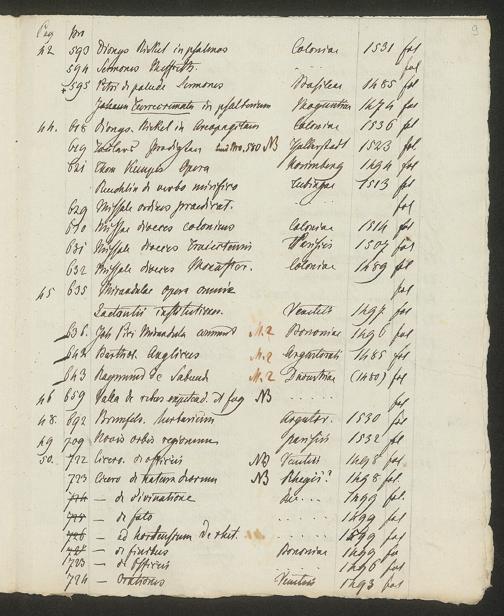 Pag Nro 9
42 593 Dionys Rickel in psalmos Coloniae 1531 fol
594 Sermones Meffreth fol
595 Petri de palude Sermones Basileae 1485 fol
Johann Turrecremata in psalterium Moguntiae 1474 fol
44. 618 Dionys. Rickel in Areopagitam Coloniae 1536 fol
619 Nro. 580 NB Halberstadt 1523 fol
621 Thom Kempis Opera Norimberg 1494 fol
Reuchlin de verbo mirifico Tubingae 1513 fol
629 Missale ordinis praedicat. fol
630 Missae dioeces coloniens Coloniae 1514 fol
631 Missale dioeces Traiectensis Parisiis 1507 fol
632 Missale dioeces Monast. Coloniae 1489 fol
45 635 Mirandulae opera omnia fol
Lactantii institutiones. Venetiis 1497 fol
636. Joh Pici Mirandula M.2 Bononiae 1496 fol
642 Barthol. Anglicus M.2 Argentorati 1485 fol
643 Raymund de Sabunde M.2 Daventriae (1480) fol
46 659 Valla de rebus NB ..... fol
48. 692 Brunfels. herbarium Argentor. 1530 fol
49 709 Novis orbis regionum Parisiis 1532 fol
50. 722 Cicero. de officiis NB Venetiis 1498 fol
723 Cicero de natura deorum NB Rhegii? 1498 fol
724 — de divinatione 1499 fol.
725 — de fato ..... 1499 fol
726 — ad hortensium De rhet. ..... 1499 fol
727 — de finibus Bononiae 1499 fol
723 — de Officiis ..... 1496 fol
724 — Orationes Venetiis 1493 fol